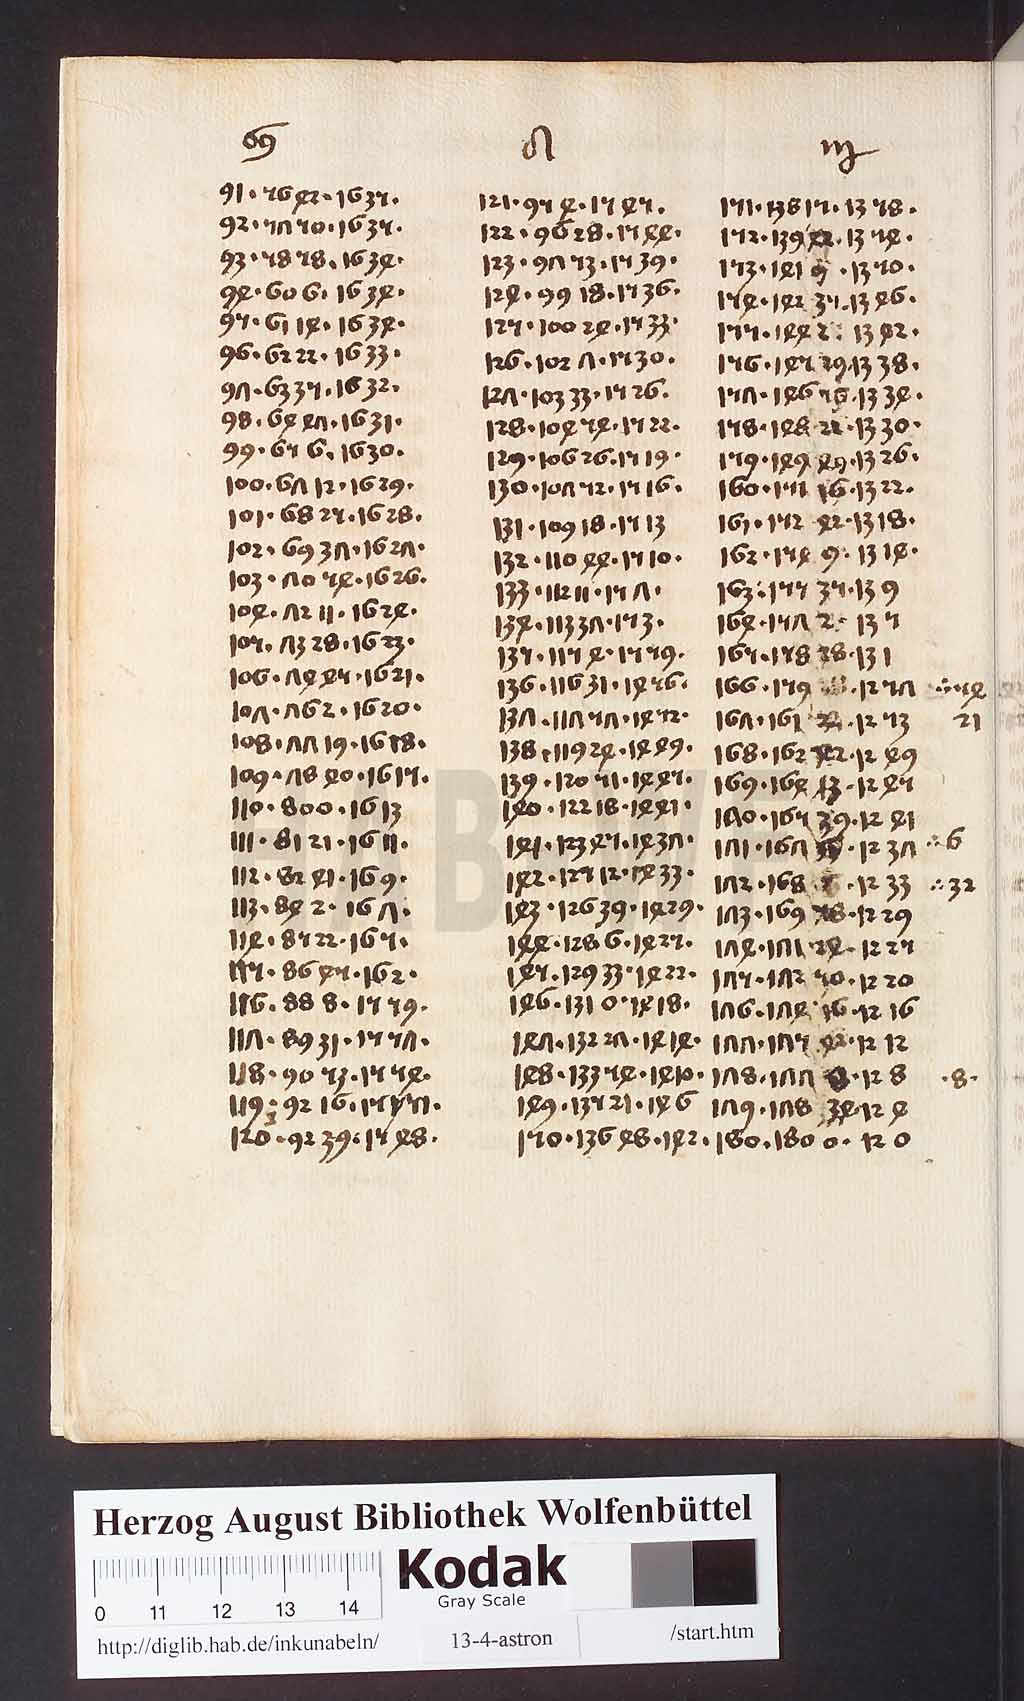 ♋
91·56 42·16 35·
92·57 50·16 35·
93·58 58·16 34·
94·60 6·16 34·
95·61 14·16 34·
96·62 22·16 33·
97·63 35·16 32·
98·64 47·16 31·
99·65 6·16 30·
100·67 12·16 29·
101·68 25·16 28·
102·69 37·16 27·
103·70 54·16 26·
104·72 11·16 24·
105·73 28·16 23·
106·74 45·16 21·
107·76 2·16 20·
108·77 19·16 18·
109·78 40·16 15·
110·80 0·16 13
111·81 21·16 11·
112·82 41·16 9·
113·84 2·16 7·
114·85 22·16 5·
115·86 45·16 2·
116·88 8·15 59·
117·89 31·15 57·
118·90 53·15 54·
119·92 16·15
120·92 39·15 48·
♌
121·95 4·15 45·
122·96 28·15 44·
123·97 53·15 39·
124·99 18·15 36·
125·100 24·15 33·
126·102 7·15 30·
127·103 33·15 26·
128·104 54·15 22·
129·106 26·15 19·
130·107 52·15 16·
131·109 18·15 13
132·110 44·15 10·
133·112 11·15 7·
134·113 37·15 3·
135·115 4·15 59·
136·116 31·14 56·
137·117 57·14 52·
138·119 24·14 49·
139·120 51·14 45·
140·122 18·14 41·
141·123 45·14 37·
142·125 12·14 33·
143·126 39·14 29·
144·128 6·14 25·
145·129 33·14 22·
146·131 0·14 18·
147·132 27·14 14·
148·133 54·14 10·
149·135 21·14 6
150·136 48·14 2·
♍
151·138 15·13 58·
152·139 42·13 54·
153·141 9·13 50·
154·142 35·13 46·
155·144 2·13 42·
156·145 29·13 38·
157·146 56·13 34·
158·148 22·13 30·
159·149 49·13 26·
160·151 16·13 22·
161·152 42·13 18·
162·154 9·13 14·
163·155 35·13 9
164·157 2·13 5
165·158 28·13 1
166·159 12 57 ∴54
167·161 12 53 21
168·162 12 49
169·164 13·12 45
170·165 39·12 41
171·167 12 37 ∴6
172·168 12 33 ∴32
173·169 58·12 29
174·171 24·12 25
175·172 50·12 20
176·174 16·12 16
177·175 42·12 12
178·177 8·12 8 ·8·
179·178 34·12 4
180·180 0·12 0
Herzog August Bibliothek Wolfenbüttel
0 11 12 13 14
Kodak
Gray Scale
http://diglib.hab.de/inkunabeln/ 13-4-astron /start.htm